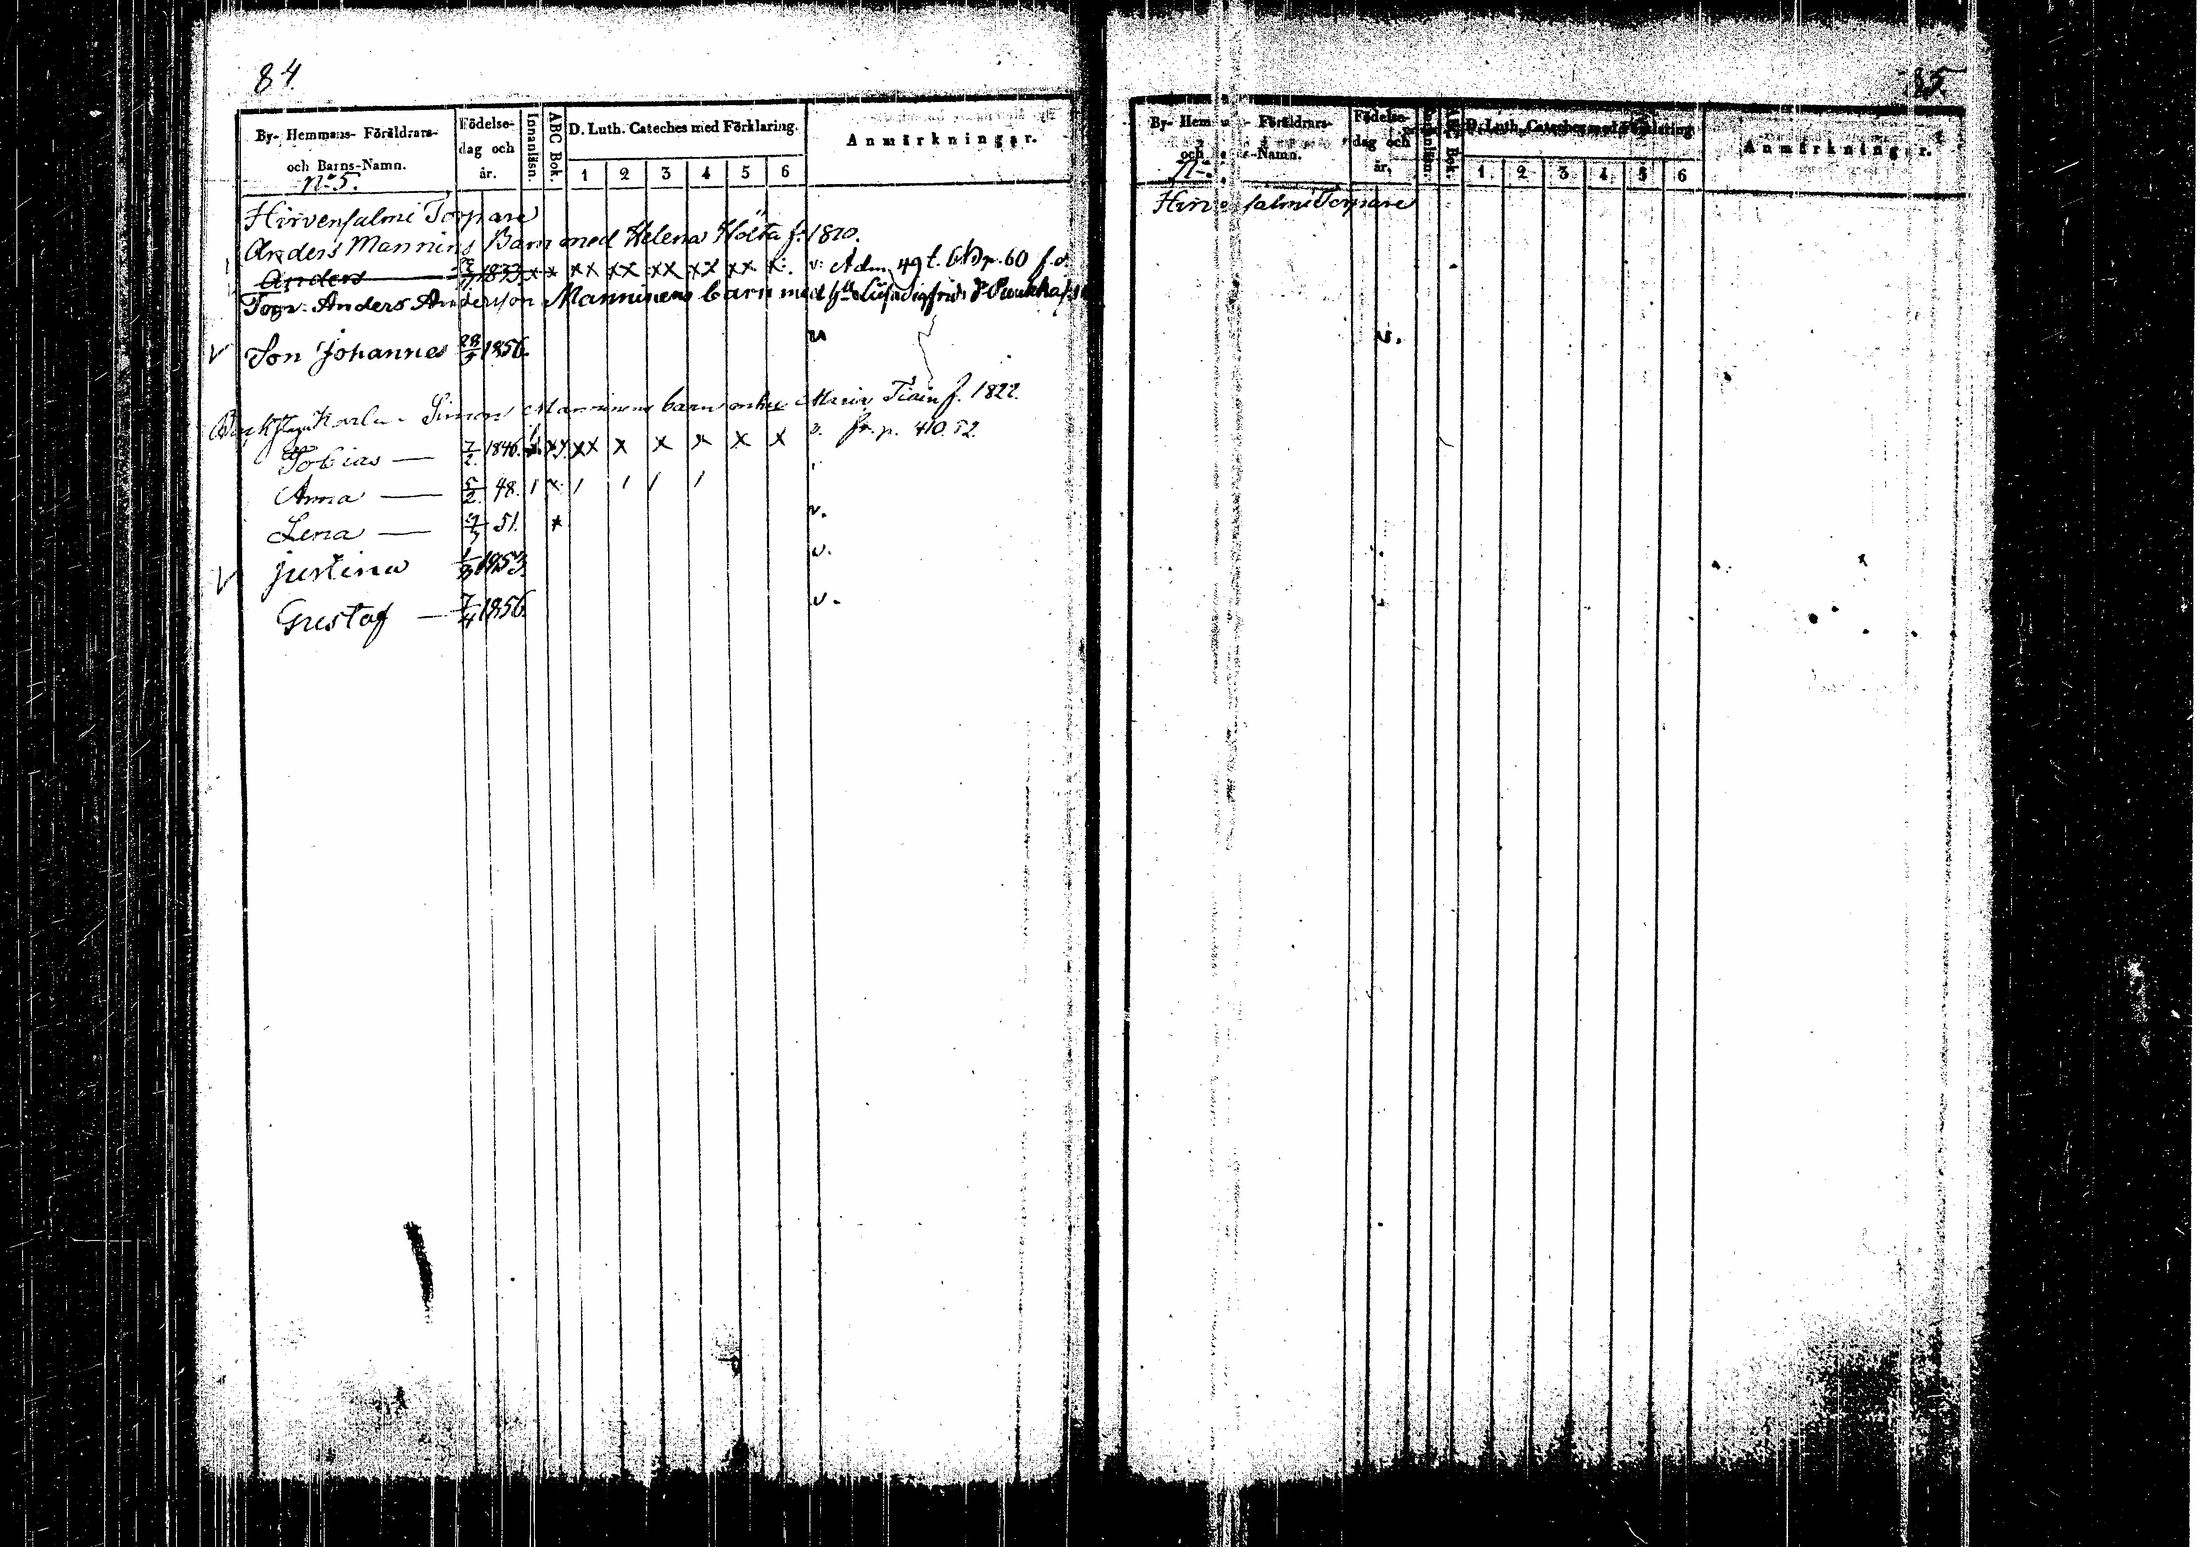 84
By- Hemmans- Föräldrars- och Barns-Namn.
Födelse- dag och år.
Innanläsn.
ABC Bok.
D. Luth. Cateches med Förklaring.
1 2 3 4 5 6
Anmärkningar.
N:o 5.
Hirvensalmi Torpare
Anders Mannins Barn med Helena Hölta f. 1810.
Anders 1833. x x xx xx xx xx xx x. v. Adm. 49 t. p. 60
Torp. Anders Anderson Manninens barn med
v Son Johannes 28/5 1856.
Karln. Simon Manninens barn Maria Tiain f. 1822.
Tobias — 7/2 1846. xx x x x x x fr. p. 410. 52.
Anna — 5/2 48. 1 x 1 1 1 1
Lena — 51. x v.
v Justina 1853. v.
Gustaf — 7/4 1856. v.
85.
By- Hemmans- Föräldrars- och Barns-Namn.
Födelse- dag och år.
Innanläsn.
ABC Bok.
D. Luth. Cateches med Förklaring
1. 2 3. 4. 5 6
Anmärkningar.
Hirvensalmi Torpare